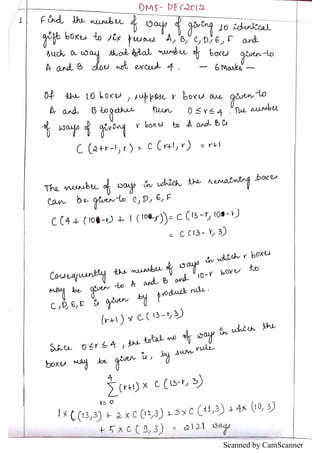 DMS - DEC2012
1 Find the number of ways of giving 10 identical
gift boxes to six persons A, B, C, D, E, F and
such a way that total number of boxes given to
A and B does not exceed 4. - 6 Marks -
Of the 10 boxes, suppose r boxes are given to
A and B together then 0 ≤ r ≤ 4. The number
of ways of giving r boxes to A and B is
C (2+r-1, r) = C (r+1, r) = r+1
The number of ways in which the remaining boxes
can be given to C, D, E, F
C (4 + (10-r) - 1 (10-r)) = C (13-r, 10-r)
= C (13-r, 3)
Consequently the number of ways in which r boxes
may be given to A and B and 10-r boxes to
C, D, E, F is given by product rule.
(r+1) x C (13-r, 3)
Since 0 ≤ r ≤ 4, the total no of ways in which the
boxes may be given is, by sum rule
4
∑ (r+1) x C (13-r, 3)
r=0
1 x C (13, 3) + 2 x C (12, 3) + 3 x C (11, 3) + 4 x (10, 3)
+ 5 x C (9, 3) = 2121 ways
Scanned by CamScanner